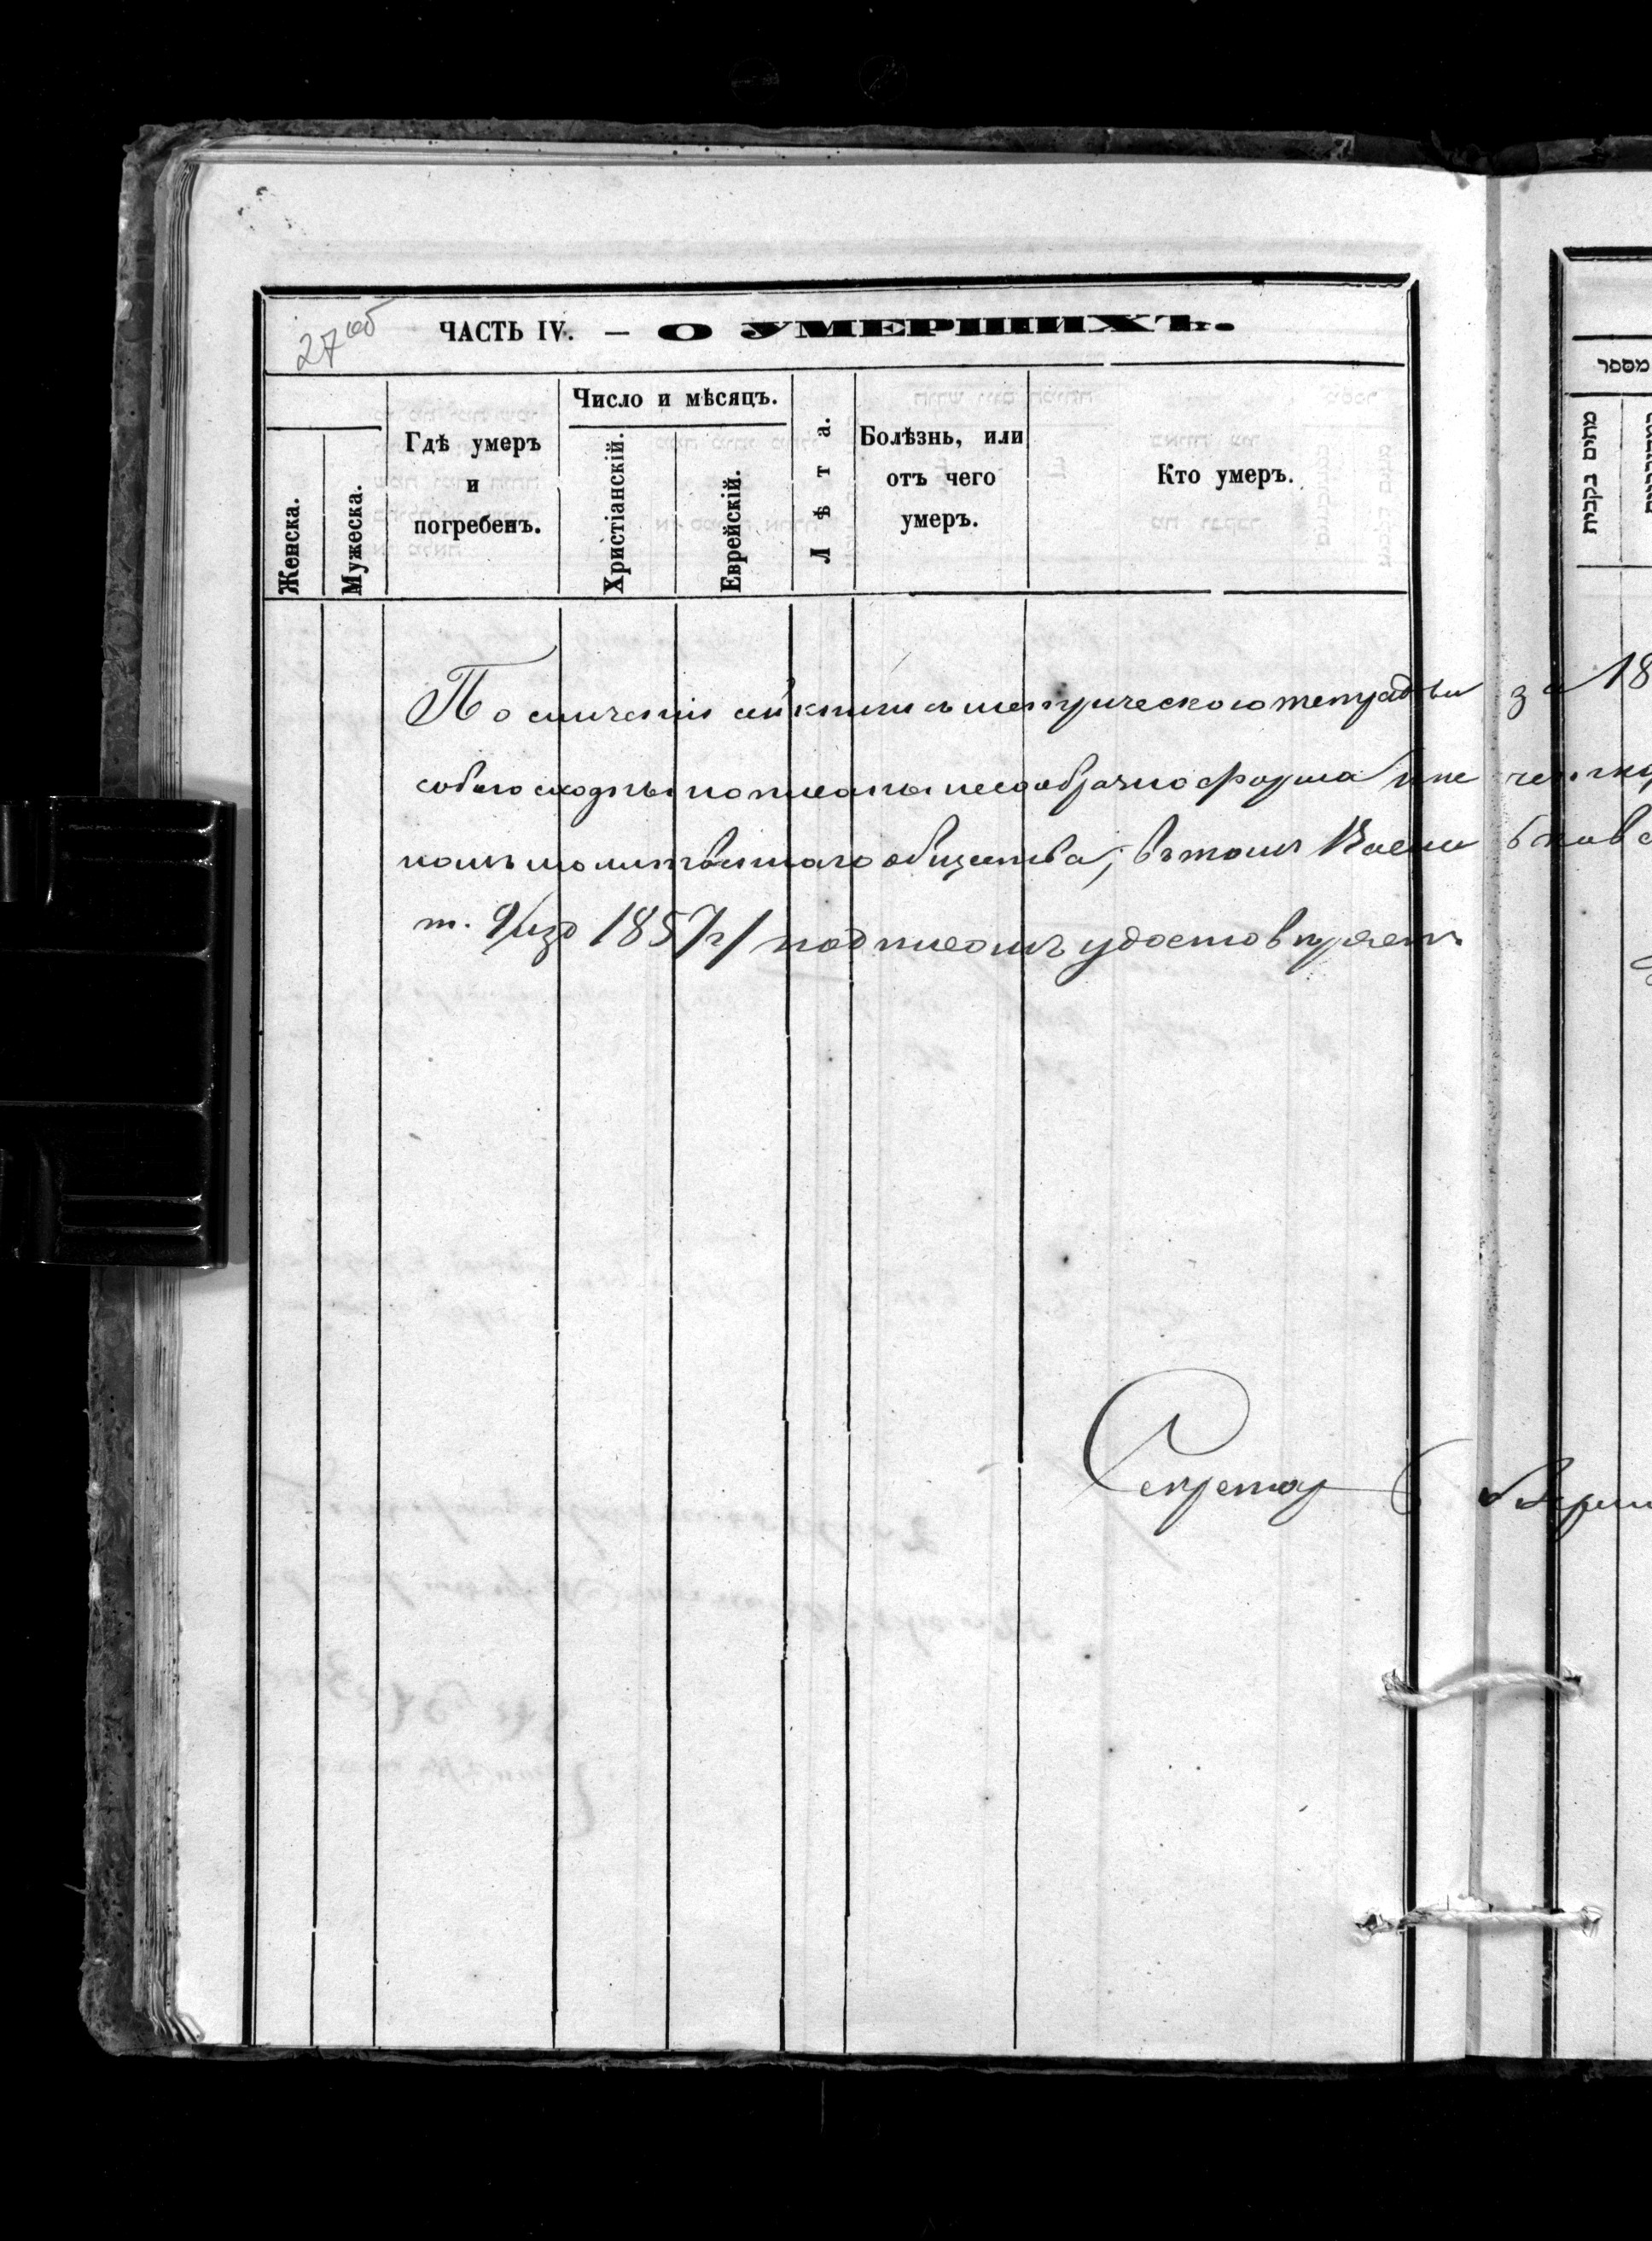 27 об
ЧАСТЬ IV. — О УМЕРШИХЪ.
Женска.
Мужеска.
Гдѣ умеръ
и
погребенъ.
Число и мѣсяцъ.
Христіанскій.
Еврейскій.
Лѣта.
Болѣзнь, или
отъ чего
умеръ.
Кто умеръ.
По сличеніи сей книги съ метрическою тетрадью за 18
собою сходны но писаны несообразно форма и не
молитвеннаго общества, въ томъ
т. 9 изд 1857 г/ подписомъ удостовѣряетъ
Секретар
מספר
מתים בקבית